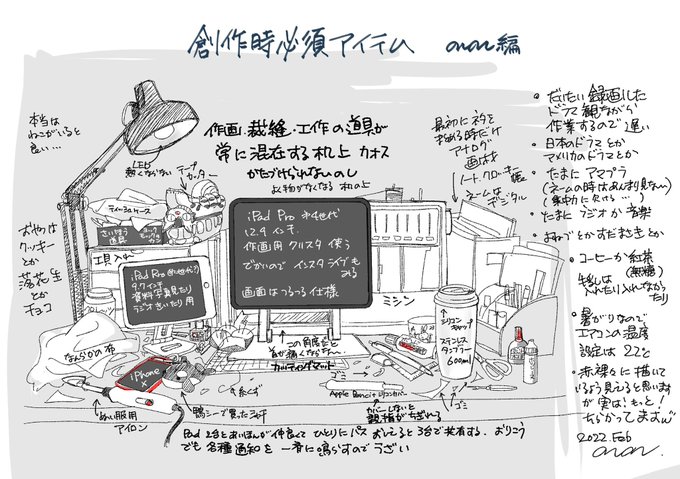 創作時必須アイテム anan編
本当は
ねこがいると
良い…
LED
熱くならない
テープ
カッター
作画・裁縫・工作の道具が
常に混在する机上 カオス
かたづけられないのし
よく物がなくなる 机の上
最初にネタを
始める時だけ
アナログ
画材は
ノート、クロッキー帳
ネームは
デジタル
ティッシュケース
さいほう
道具
工具入れ
おやつは
クッキー
とか
落花生
とか
チョコ
iPad Pro 第4世代
12.9インチ
作画用 クリスタ 使う
でかいので インスタライブも
みる
画面はつるつる仕様
iPad Pro
9.7インチ
資料写真見たり
ラジオきいたり 用
ミシン
なんらかの布
この角度だと
首が痛くならない
カッティングマット
iPhone
X
糸くず
ぬい服用
アイロン
鴨シーで買った
Apple Pencil + シリコンカバー
カバーしないと
シリコン
キャップ
ステンレス
タンブラー
600ml
ゴミ
iPad 2台とあいほんが仲良くて ひとりにパス おしえると 3台で共有する. おりこう
でも 各種通知を 一斉に 鳴らすので うざい
・だいたい 録画した
ドラマ観ながら
作業するので 遅い
・日本のドラマ とか
アメリカのドラマとか
・たまに アマプラ
(ネームの時はあんまり見ない)
(集中に欠ける…)
・たまに ラジオか 音楽
・コーヒーか 紅茶
(無糖)
牛乳は
入れたり 入れなかっ
たり
・暑がりなので
エアコンの温度
設定は 22℃
・赤裸々に描いて
いるよう見えると思います
が 実は もっと!
ちらかってますw
2022. Feb
anan.